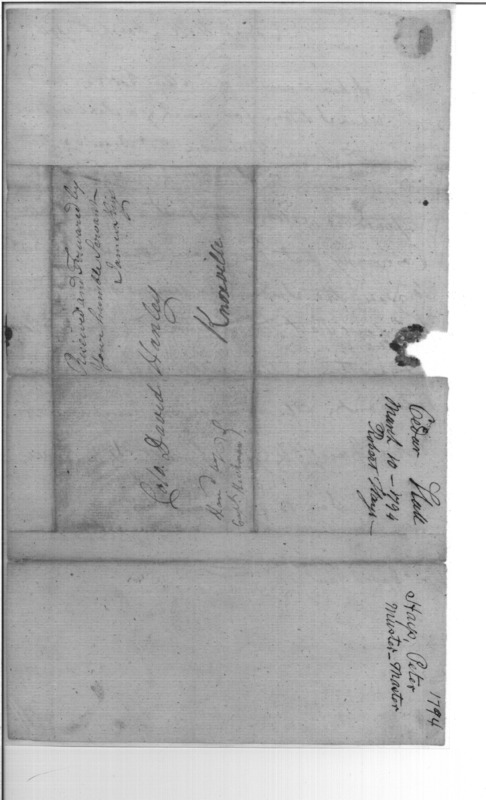 Received and Forwarded by
Your humble Servant
James
Colo. David Henley
Knoxville
Cedar Hall
March 10 - 1794
Robert Hays
1794
Hays, Peter
Muster-Master